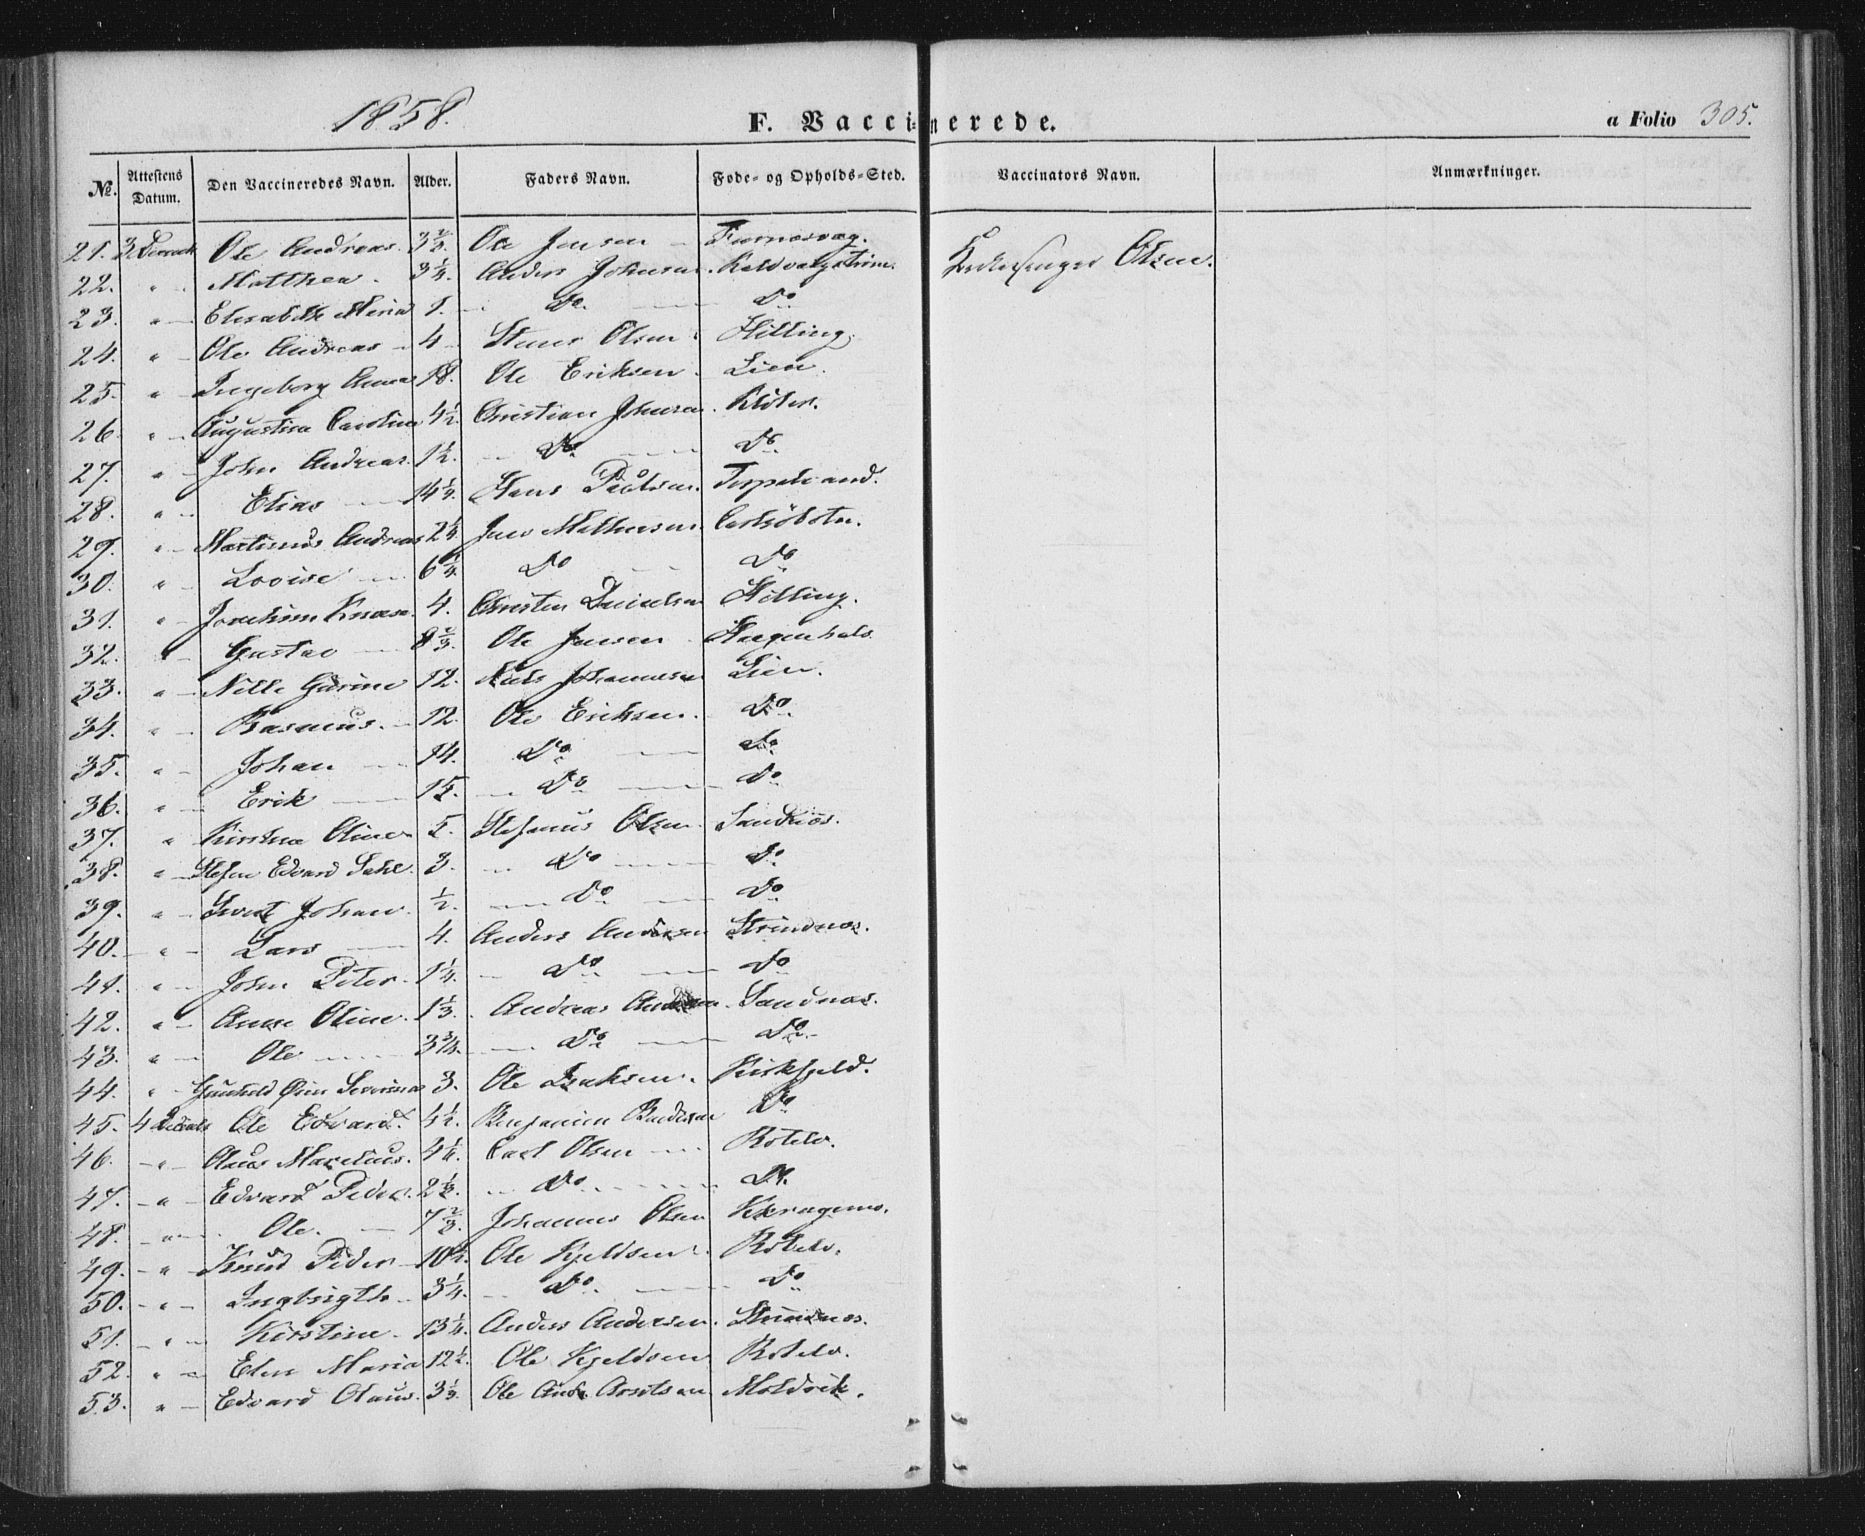 1858.
F. Vaccinerede.
a Folio 305.
No. Attestens Datum. Den Vaccineredes Navn. Alder. Faders Navn. Føde- og Opholds-Sted. Vaccinators Navn. Anmærkninger.
21. 3 Ole Andreas. 3 2/3. Ole Jensen Kirkesanger Olsen.
22. " Matthea. 3 1/4. Anders Johnsen.
23. " Elisabeth 1. Do Do
24. " Ole Andreas 4 Olsen Hilling.
25. " Ingeborg Anna 18. Ole Eriksen. Lien.
26. " Augustina Carolina 4 1/2. Christian Johnsen.
27. " John Andreas. 1 1/2. Do Do
28. " Elias 14 1/4. Hans Paulsen.
29. " Martinus Andreas 2 1/4. Mathisen.
30. " Lovise 6 1/4. Do Do
31. " Joachim 4. Christen Danielsen Hilling.
32. " Gustav 8 2/3. Ole Jensen
33. " Nille 12. Niels Johannesen Lien.
34. " Rasmus. 12. Ole Eriksen. Do
35. " Johan 14. Do Do
36. " Erik 15. Do Do
37. " Kirstina Oline 5. Stefanus Olsen Sandnæs.
38. " Stefen Edvard 3. Do Do
39. " Johan. 1/2. Do Do
40. " Lars 4. Anders Andersen Strindnæs.
41. " John Peter. 1 1/4. Do Do
42. " Anne Oline. 1 1/3. Andreas Sandnæs.
43. " Ole 3 3/4. Do Do
44. " Gunhild Severine 3. Ole Isaksen.
45. 4 Ole Edvard. 4 1/2. Benjamin Do
46. " Olaus Marelius. 4 1/4. Carl Olsen Rotelv.
47. " Edvard Peder. 2 1/2. Do Do
48. " Ole. 7 2/3. Johannes Olsen
49. " Knud Peder 10 1/2. Ole Kjeldsen. Rotelv.
50. " Ingbrigth 3 1/4. Do Do
51. " Kirstine 13 1/4. Anders Andersen. Strindnæs.
52. " Elen Maria 12 1/2. Ole Kjeldsen Rotelv.
53. " Edvard Olaus. 3 1/3. Ole Arntsen Moldvik.